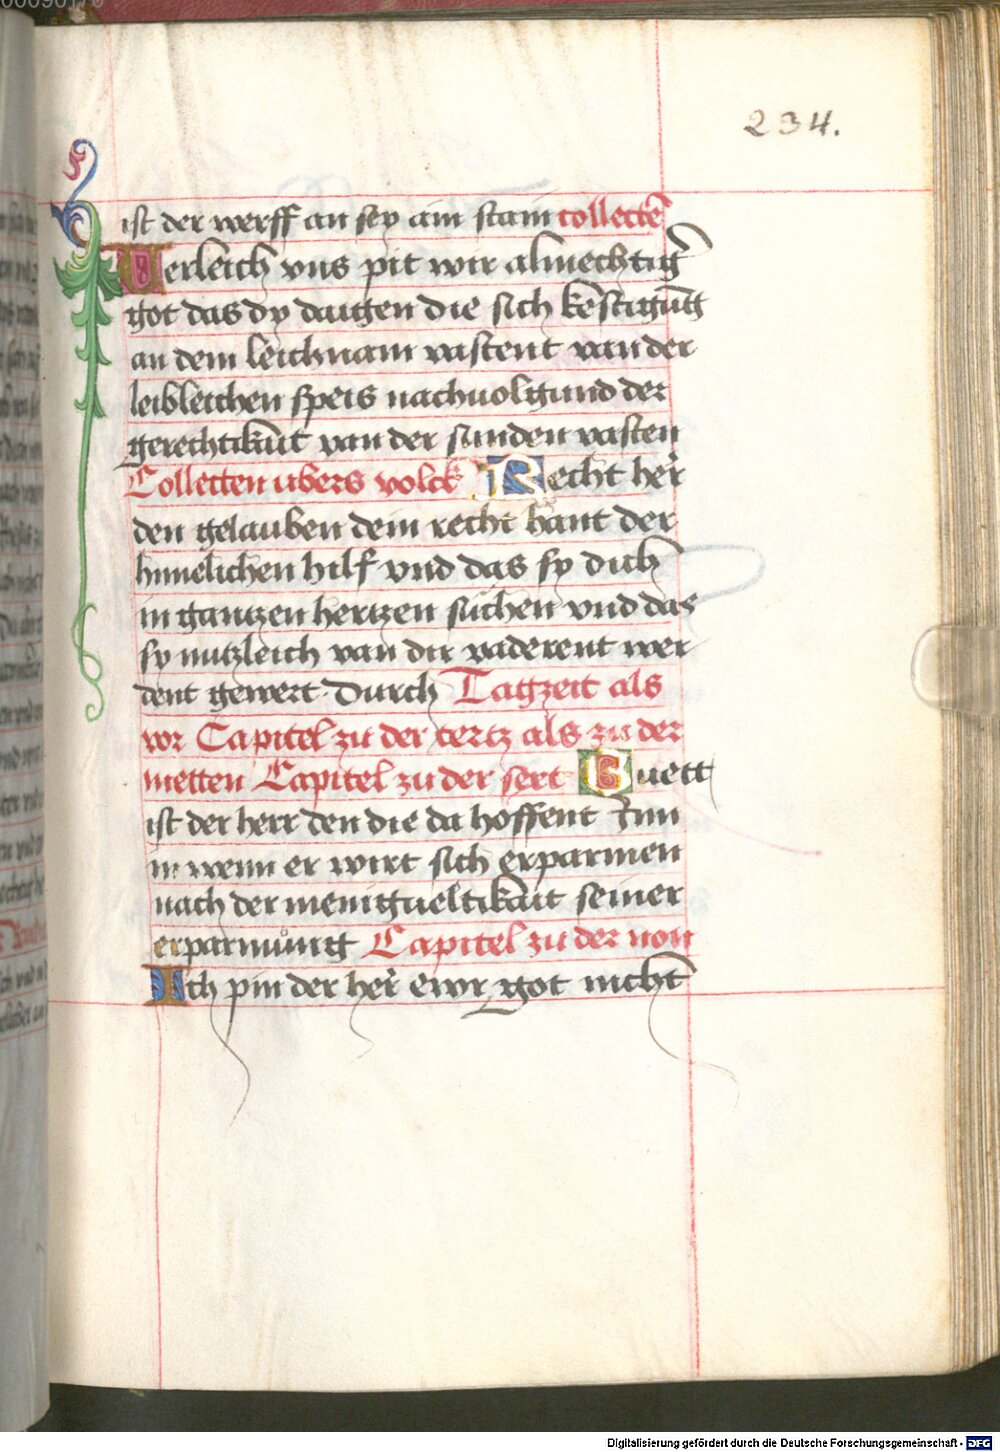 234.
ist der werff an sey ain stain collectē
Verleich vns pit wir almechtig̃
got das dy daigen die sich kestigũg
an dem leichnam vastent van der
leibleichen speis nachuolgund der
gerechtikait van der sunden vasten
Collecten vbers volck Recht her̃
den gelauben dein recht hant der
himelichen hilf vnd das sy dich
in gantzen hertzen suchen vnd das
sy nutzleich van dir vaderent wer
dent gewert durch Tagzeit als
vor Capitel zu der tertz als zu der
metten Capitel zu der sext Guett
ist der herr den die da hoffent Inn
in wenn er wirt sich erparmen
nach der menigueltikait seiner
erparmůng Capitel zu der non
Ich pin der her̃ ewr got nicht
Digitalisierung gefördert durch die Deutsche Forschungsgemeinschaft - DFG